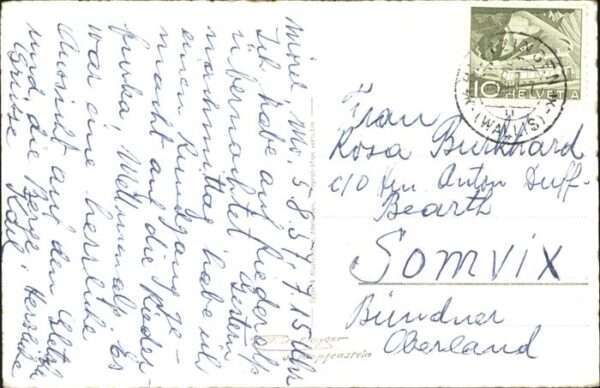 Mörel, Mo. 5.8.57, 7.15 Uhr
Ich habe auf Riederalp
übernachtet. Gestern
nachmittag habe ich
einen Rundgang ge-
macht auf die Rieder-
furka, Es
war eine herrliche
Aussicht auf den Gletscher
und die Berge. Herzliche
Grüsse
10 HELVETIA
(WALLIS)
Frau
Rosa Burkhard
c/o Hrn. Anton Duff-
Bearth
SOMVIX
Bündner
Oberland